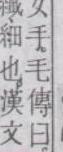 女手。毛傳曰
纖細也。漢文